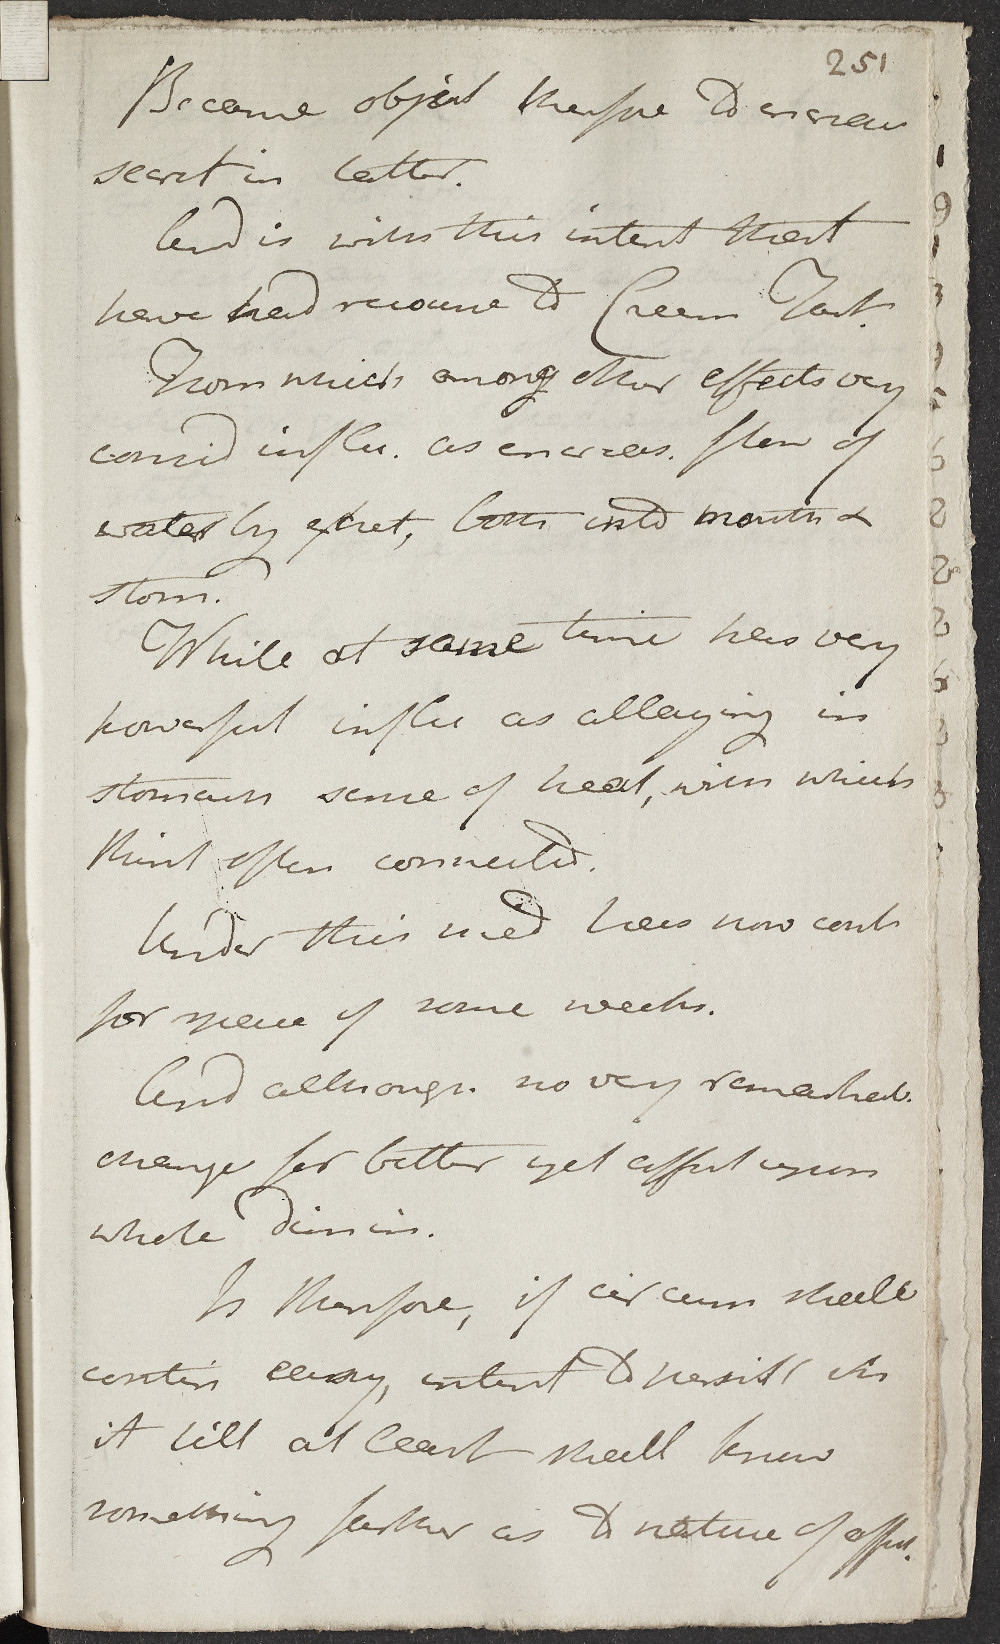 251
Became object therfore to encreas
secret in latter.
And is with this intent that
have had recourse to Cream Tart.
From which among other effects very
consid influ. as encreas. flow of
water by exhet, both into mouth &
stom.
While at same time has very
powerful influ as allaying in
stomach sense of heat, with which
thirst often connected.
Under this med has now cont
for space of some weeks.
And although no very remarkab.
change for better yet affect upon
whole dimin.
Is therfore, if circum shall
contin easy, intent to persist in
it till at least shall know
something farther as to nature of affec.